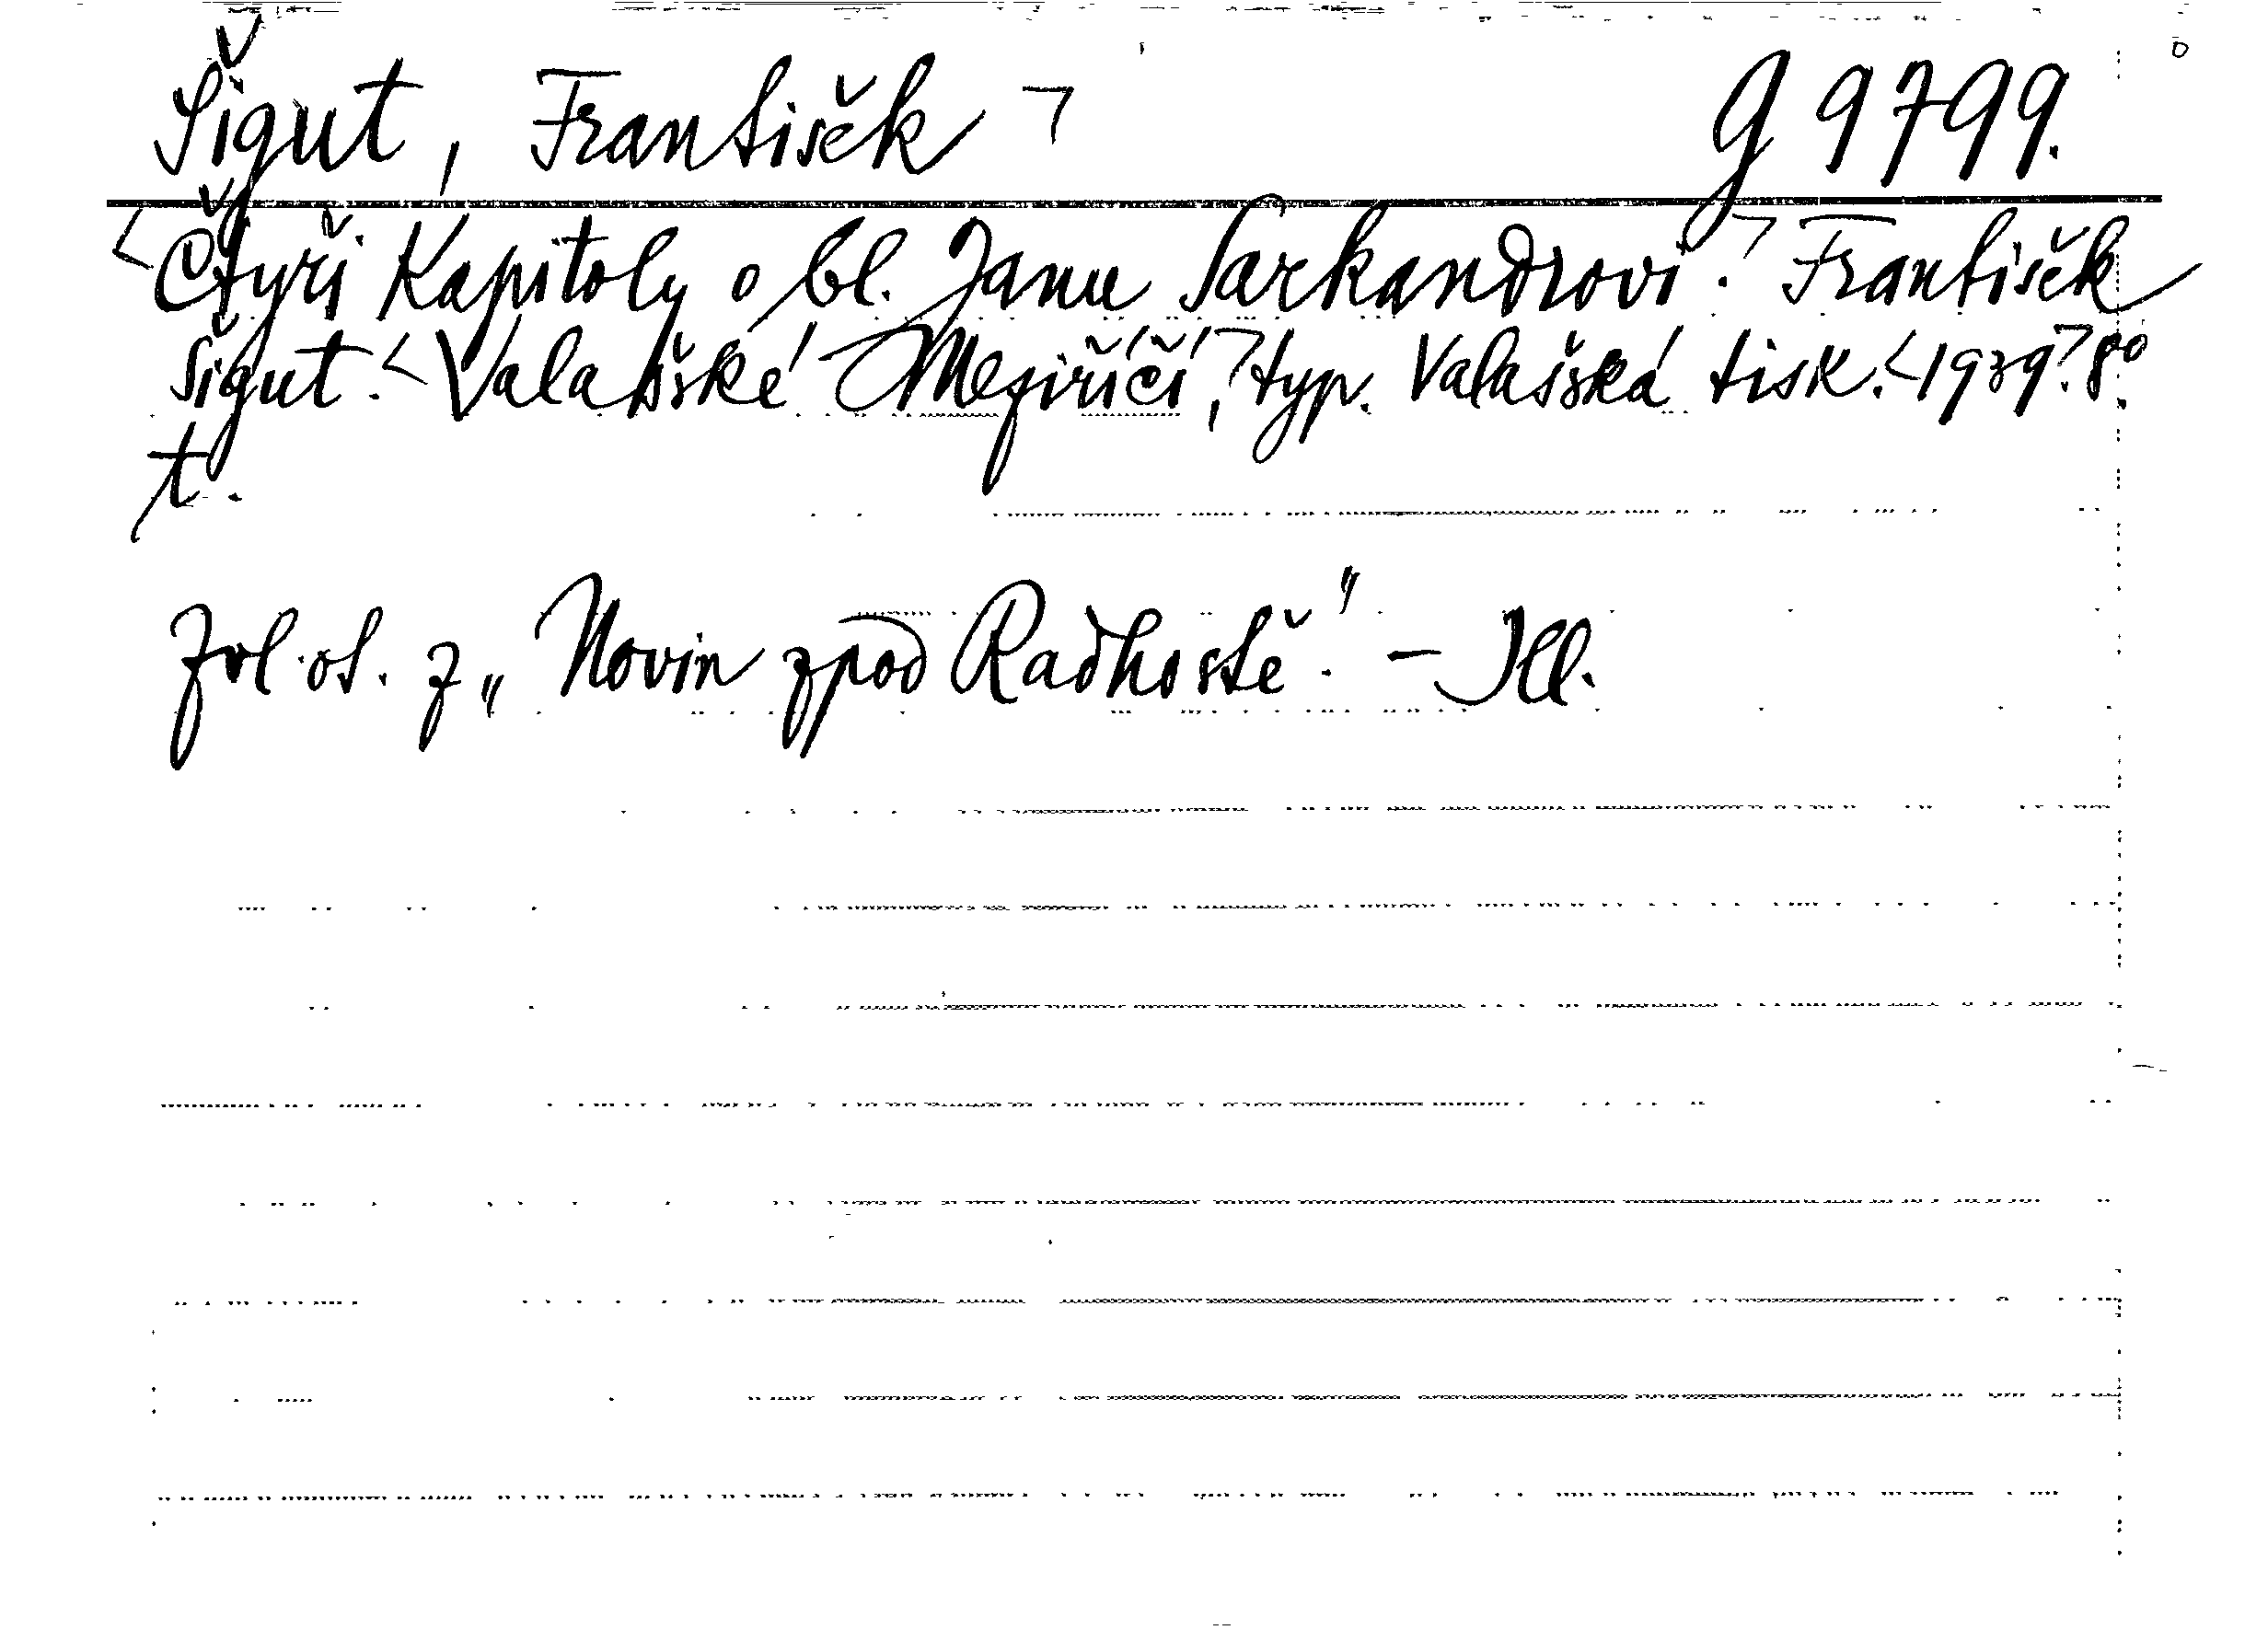 Šigut, František ¬ G 9799.
<Čtyři Kapitoly o bl. Janu Sarkandrovi.¬ František
Šigut. <Valašské Meziříčí,¬ typ. Valašská tisk. <1939¬. 8°.
t.
Zvl. ot. z „Novin zpod Radhoště." – Ill.